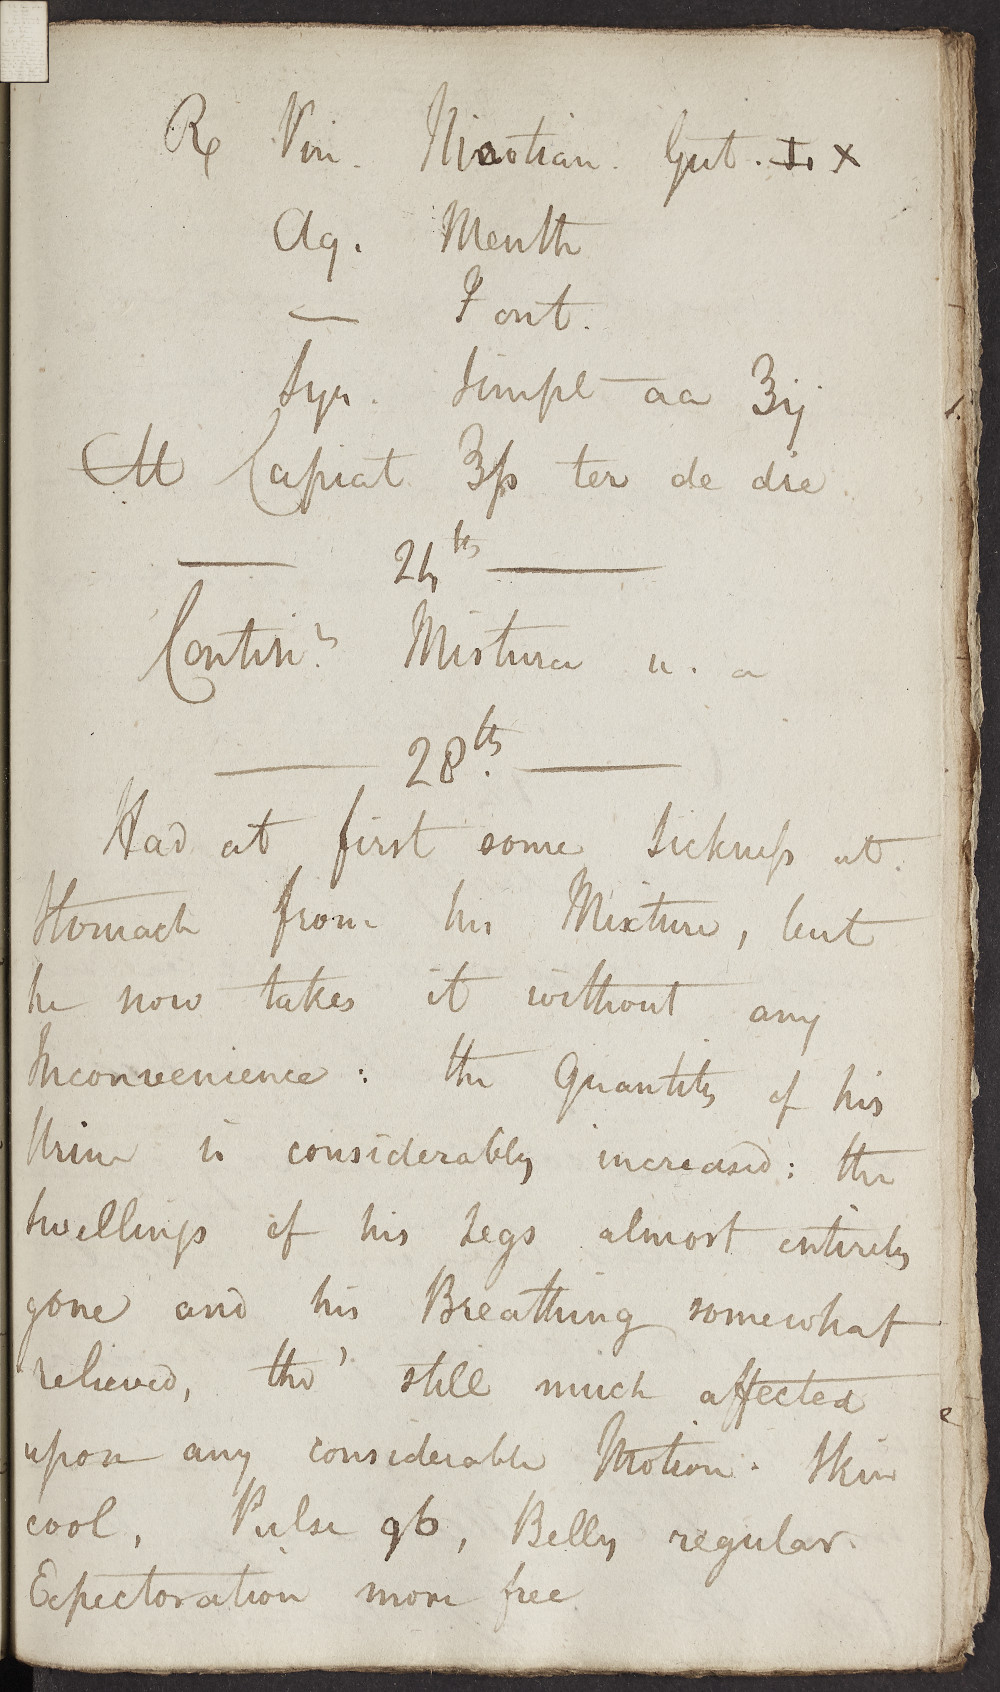 ℞ Vin. Nicotian. Gut. Lx
Aq. Menth
— Font.
Syr. Simpl aa ʒij
M Capiat ʒß ter de die.
— 24th —
Continr Mistura u. a
— 28th. —
Had at first some Sickneſs at
Stomach from his Mixture, but
he now takes it without any
Inconvenience: the Quantity of his
Urine is considerably increased: the
Swellings of his Legs almost entirely
gone and his Breathing somewhat
relieved, tho' still much affected
upon any considerable Motion. Skin
cool, Pulse 96, Belly regular.
Expectoration more free